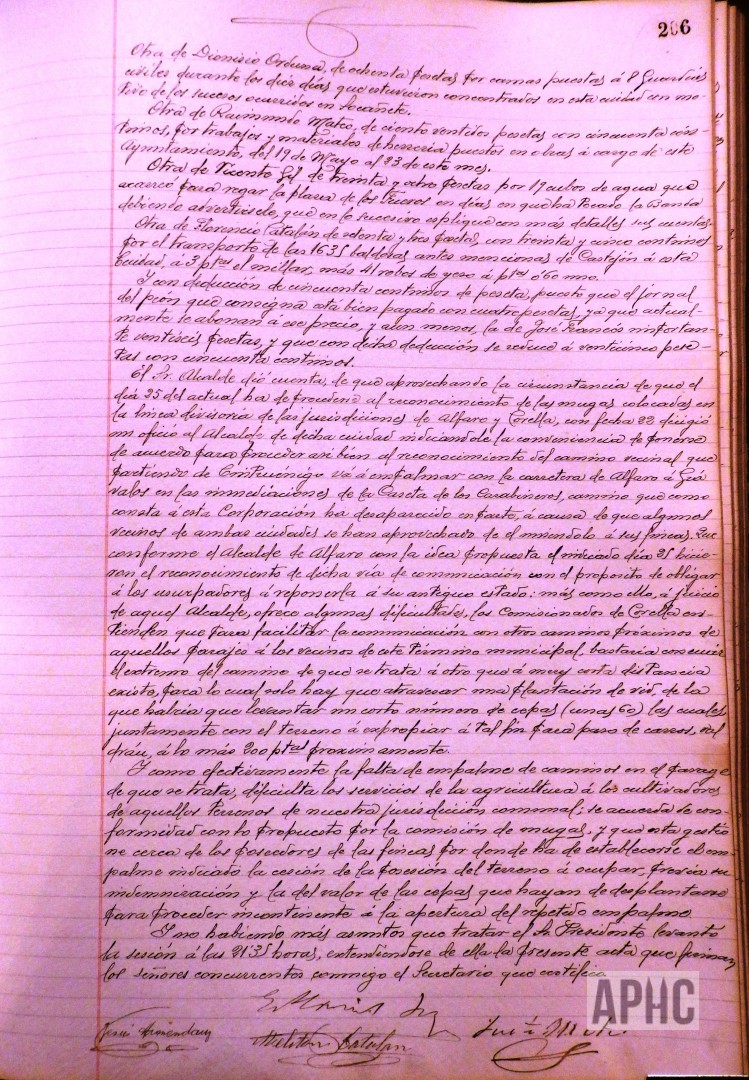 206
Otra de Dionisio Orduna, de ochenta pesetas por camas puestas á 8 Guardias
civiles durante los diez días que estuvieron concentrados en esta ciudad con mo-
tivo de los sucesos ocurridos en
Otra de Raimundo Mateo, de ciento ventidos pesetas con cincuenta cén-
timos, por trabajos y materiales de herreria puestos en obras á cargo de este
Ayuntamiento, del 19 de Mayo al 23 de este mes.
Otra de Vicente Gil de treinta y ocho pesetas por 19 cubos de agua que
acarreó para regar la plaza de los Fueros en días en que ha tocado la Banda
debiendo advertirsele, que en lo sucesivo esplique con más detalles sus cuentas.
Otra de Florencio Catalán de setenta y tres pesetas, con treinta y cinco centimos
por el transporte de las 1635 baldosas antes mencionas de Castejón á esta
Ciudad, á 3 ptas el millar, más 41 robos de yeso á ptas 0'60 uno.
Y con deducción de cincuenta centimos de peseta, puesto que el jornal
del peon que consigna está bien pagado con cuatro pesetas, ya que actual-
mente se abonan á ese precio, y aun menos, la de José Francés importan-
te ventiseis pesetas, y que con dicha deducción se reduce á venticinco pese-
tas con cincuenta centimos.
El Sr. Alcalde dió cuenta, de que aprovechando la circunstancia de que el
día 25 del actual ha de procederse al reconocimiento de las mugas colocadas en
la linea divisoria de las jurisdiciones de Alfaro y Corella, con fecha 22 dirigió
un oficio al Alcalde de dicha ciudad indicandole la conveniencia de ponerse
de acuerdo para proceder asi bien al reconocimiento del camino vecinal que
partiendo de Cintruénigo vá á empalmar con la carretera de Alfaro á Grá
valos en las inmediaciones de la Caseta de los Carabineros, camino que como
consta á esta Corporación ha desaparecido en parte, á causa de que algunos
vecinos de ambas ciudades se han aprovechado de él uniendolo á sus fincas. Que
conforme el Alcalde de Alfaro con la idea propuesta el indicado día 25 hicie-
ron el reconocimiento de dicha vía de comunicación con el proposito de obligar
á los usurpadores á reponerla á su antiguo estado: más como ello, á juicio
de aquel Alcalde, ofrece algunas dificultades, los Comisionados de Corella en-
tienden que para facilitar la comunicación con otros caminos próximos de
aquellos parajes á los vecinos de este término municipal, bastaria con unir
el extremo del camino de que se trata á otro que á muy corta distancia
existe, para lo cual solo hay que atravesar una plantación de vid, de la
que habria que levantar un corto número de cepas (unas 60) las cuales,
juntamente con el terreno á expropiar á tal fin para paso de carros, val
drán, á lo más 200 ptas proximamente.
Y como efectivamente la falta de empalme de caminos en el paraje
de que se trata, dificulta los servicios de la agricultura á los cultivadores
de aquellos terrenos de nuestra jurisdicion comunal; se acuerda de con-
formidad con lo propuesto por la comisión de mugas, y que esta gestio
ne cerca de los poseedores de las fincas por donde ha de establecerse el em-
palme indicado la cesión de la posesión del terreno á ocupar, previa su
indemnización y la del valor de las cepas que hayan de desplantarse
para proceder incontinente á la apertura del repetido empalme.
Y no habiendo más asuntos que tratar el Sr Presidente levantó
la sesión á las 21'35 horas, extendiendose de ella la presente acta que firman
los señores concurrentes conmigo el Secretario que certifico.
APHC
Armendariz
Catalan